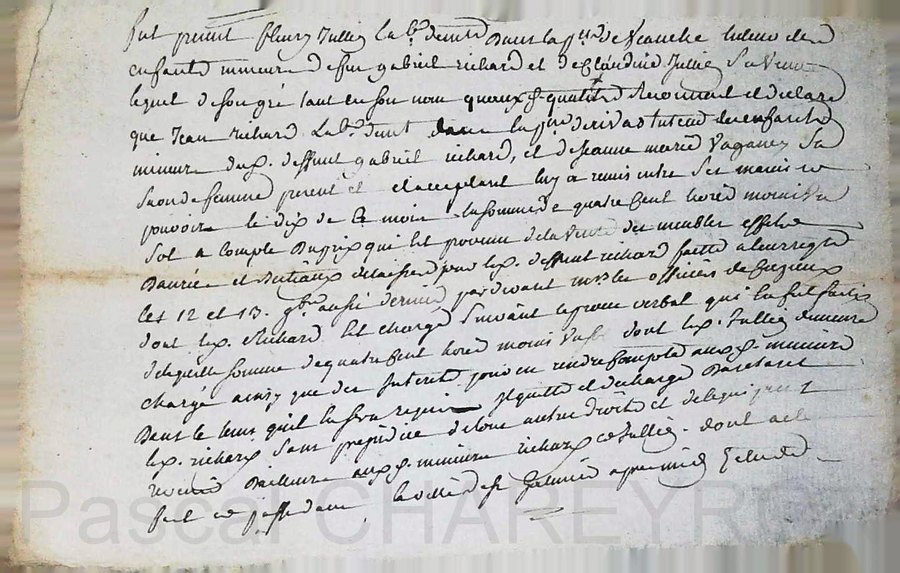 fut présent fleury Jullien Lab.r demt dans la p.sse de Veauche tuteur des
enfants mineurs de feu gabriel richard et de Claudine Jullien Sa Veuve
lequel de Son gré tant en Son nom qu'aux qualités Reconnait et declare
que Jean richard Lab.r demt dans la p.sse de rivas tuteur des enfants
mineurs dud. deffunt gabriel richard, et de jeanne marie Vaganey Sa
Seconde femme présent et acceptant luy a remis entre Ses mains et
pouvoir le dix de Ce mois la Somme de quatre Cent livres moins un
Sol a Compte du prix qui Est provenu de la Vente des meubles effets
Danrées et Bestiaux delaissés par led. deffunt richard faitte a leur reqte
les 12 et 13. 9bre aussi dernier, pardevant mrs les officiers de Cuzieux
dont led. Richard Est chargé Suivant le proces verbal qui En fut fait
de laquelle Somme de quatre Cent livres moins un Sol dont led. Jullien demeure
chargé ainsy que des Interets pour en rendre Compte aux d. mineurs
Dans le tems qu'il En Sera requis Il quitte et decharge
led. richard Sans prejudice de tous autres droits et
aux d. mineurs richard et Jullien. dont acte
fait et passé dans la ville de St Galmier apres midy
Pascal CHAREYRON